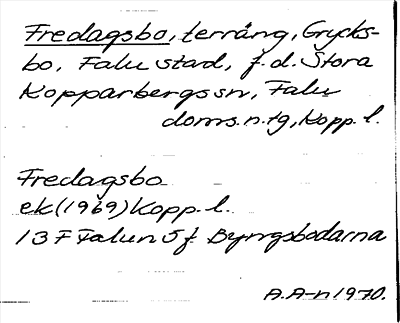 Fredagsbo, terräng, Grycks-
bo, Falu stad, f.d. Stora
Kopparbergs sn, Falu
doms.n.tg, Kopp.l.
Fredagsbo
ek(1969)Kopp.l.
13 F Falun 5 f Byngsbodarna
A.A-n 1970.